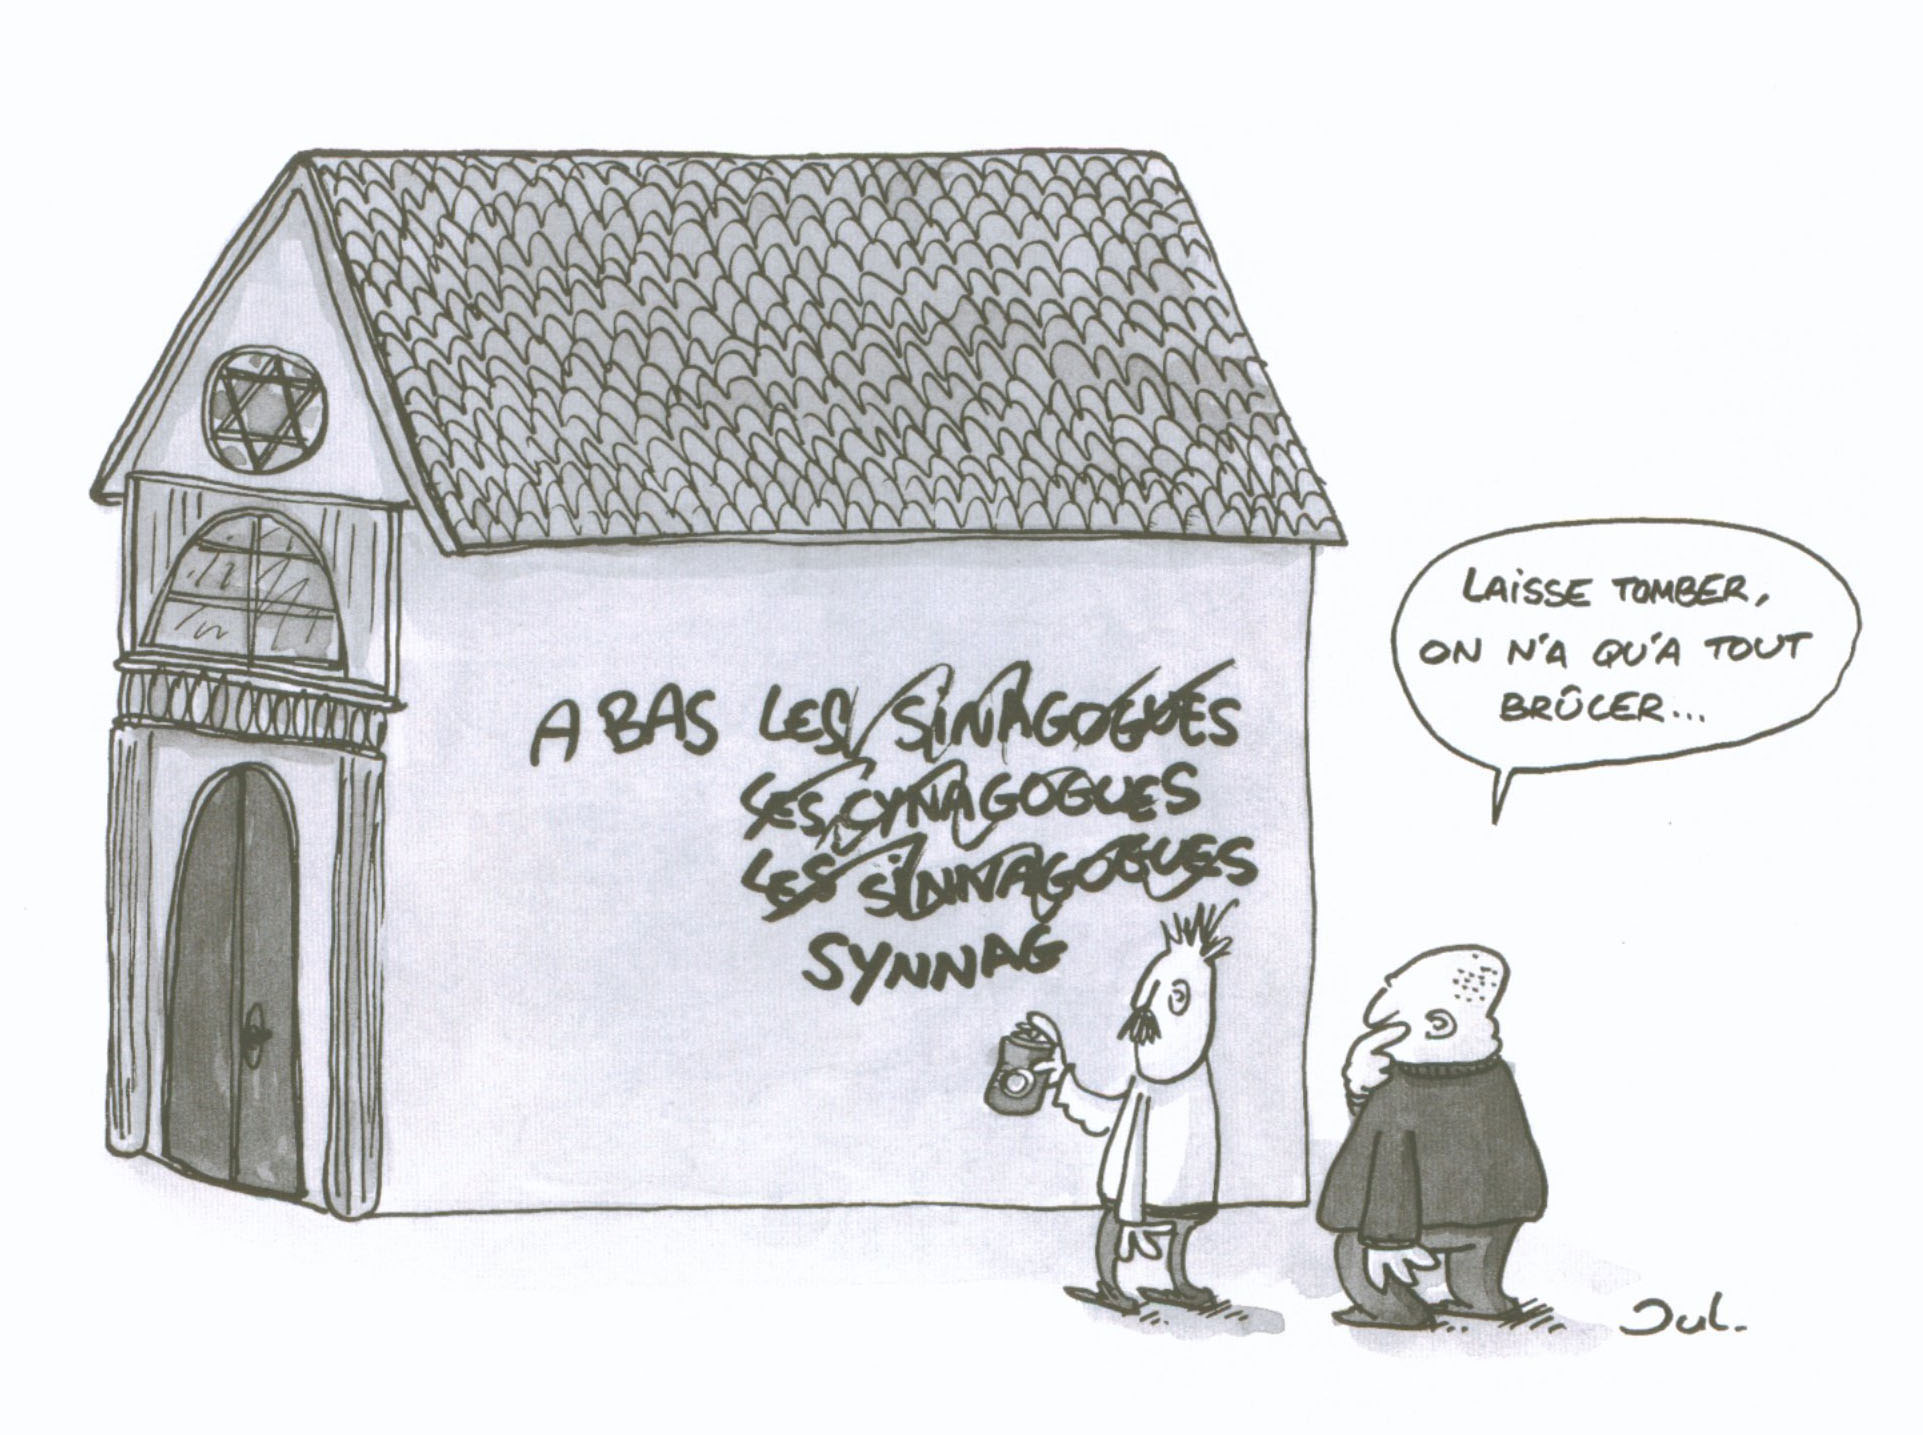 A BAS LES SINAGOGUES
LES CYNAGOGUES
LES SINNAGOGUES
SYNNAG
LAISSE TOMBER,
ON N'A QU'A TOUT
BRÛLER...
Jul.